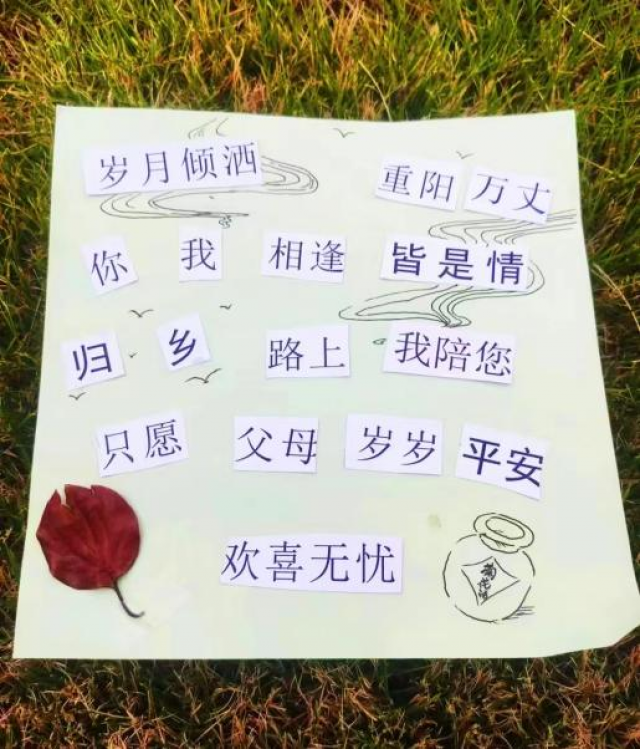 岁月倾洒 重阳 万丈
你 我 相逢 皆是情
归 乡 路上 我陪您
只愿 父母 岁岁 平安
欢喜无忧
菊花酒